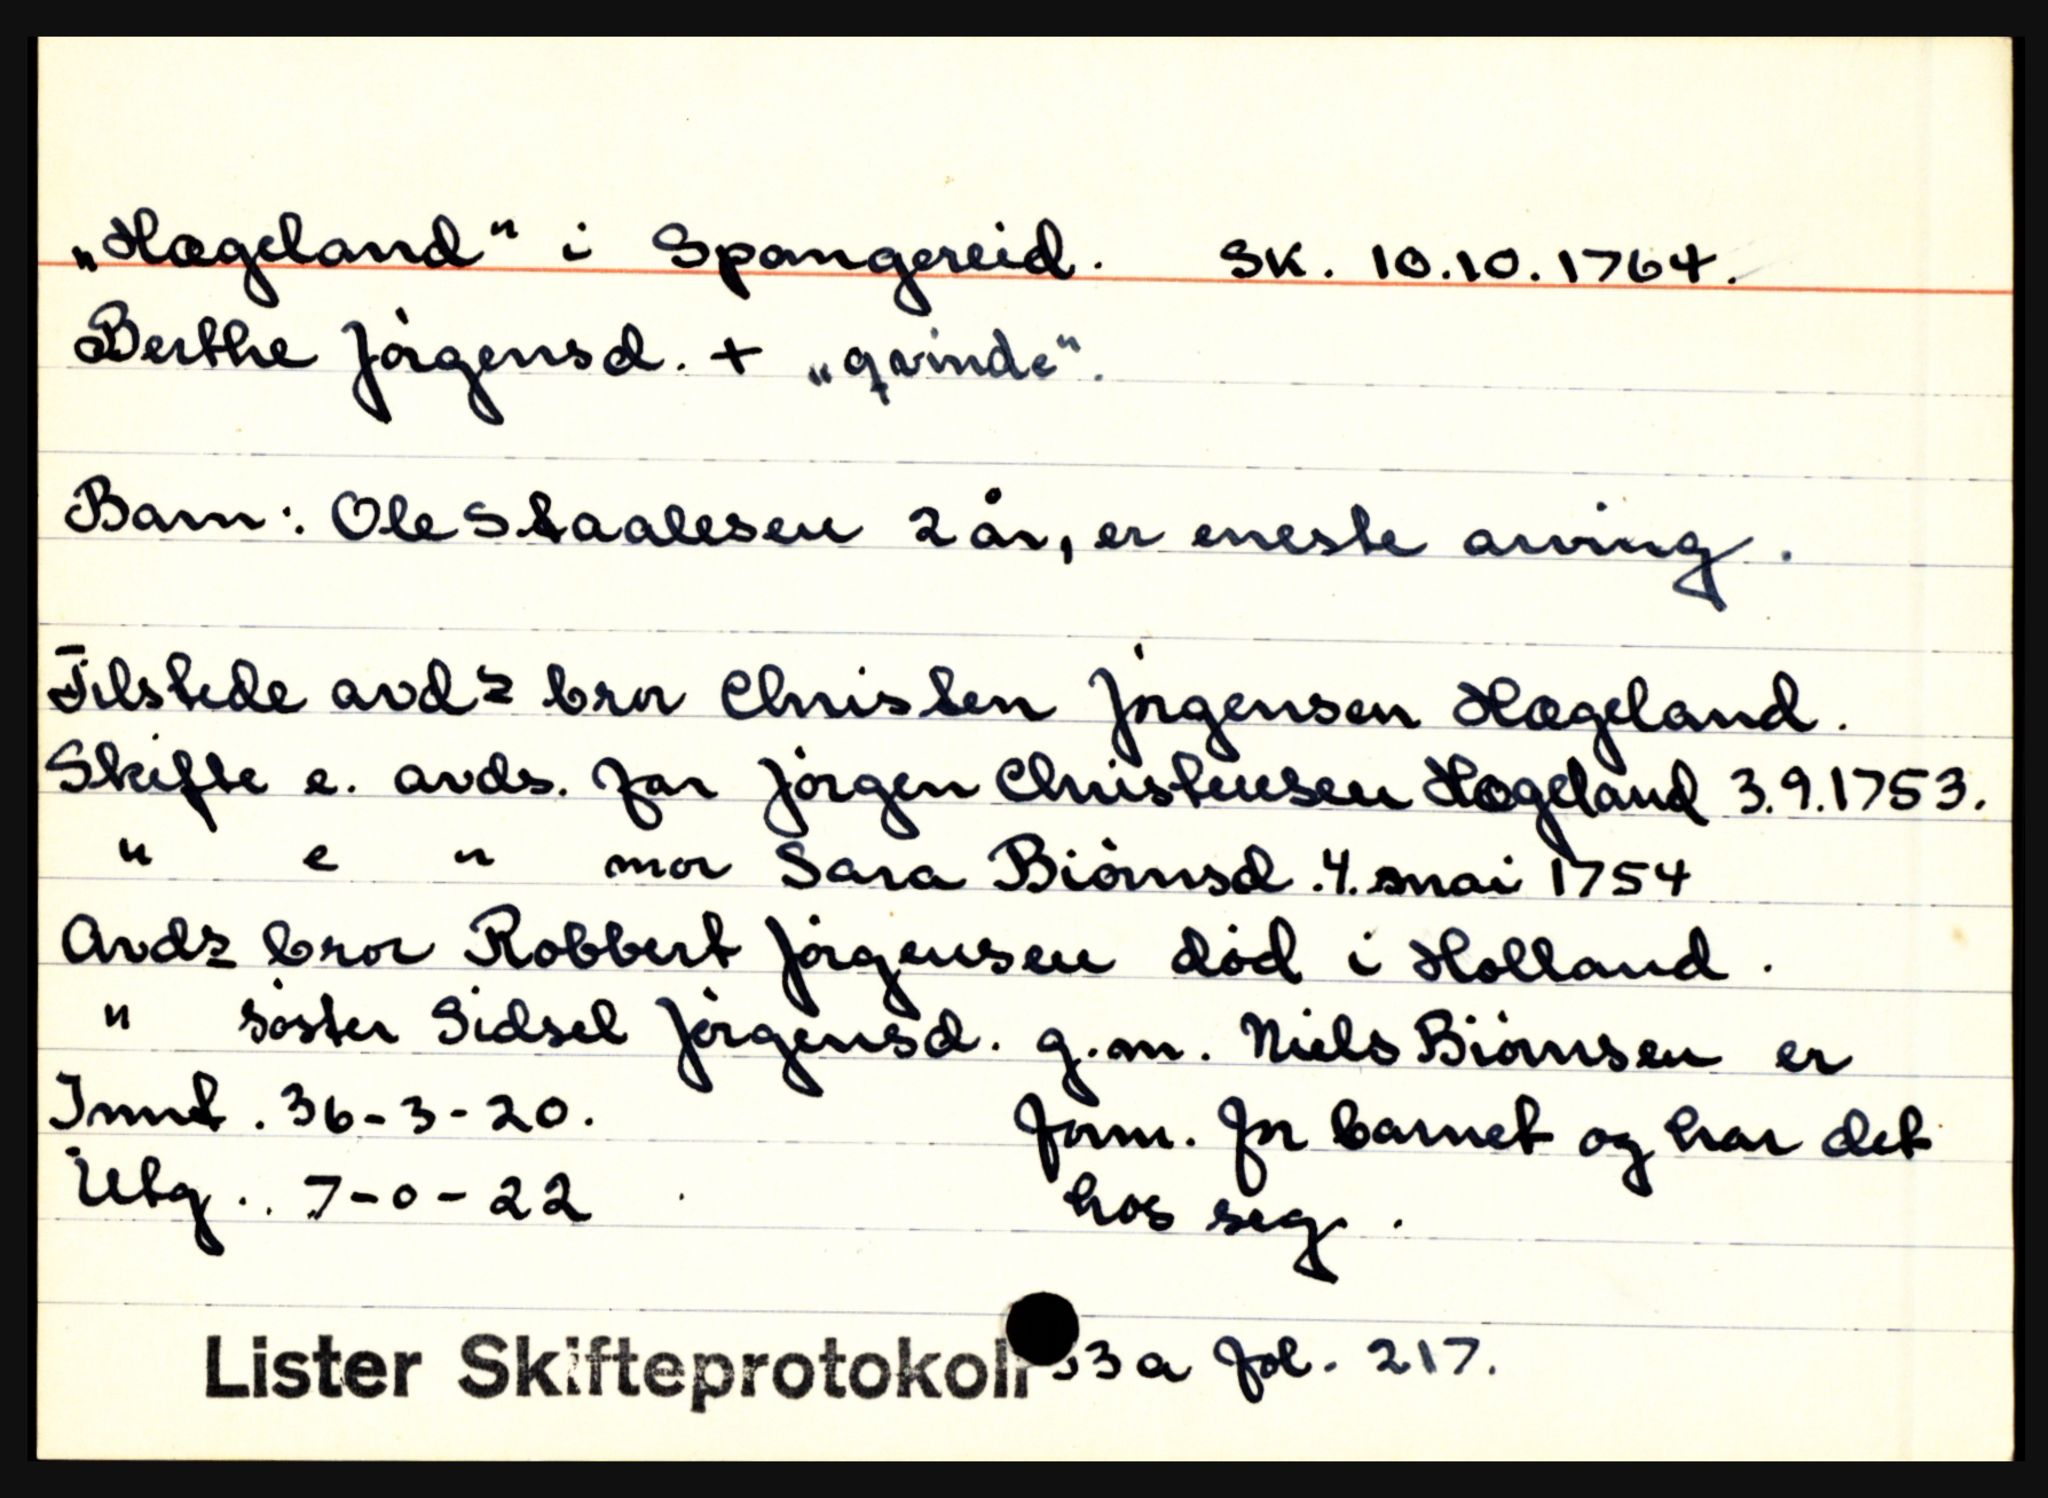 „Hægeland" i Spangereid. Sk. 10.10.1764.
Berthe Jörgensd. + „qvinde".
Barn: Ole Staalesen 2 år, er eneste arving.
Tilstede avds bror Christen Jörgensen Hægeland.
Skifte e. avds. far Jörgen Christensen Hægeland 3.9.1753.
" e " mor Sara Biörnsd. 4. mai 1754
Avds bror Robbert Jörgensen död i Holland.
" söster Sidsel Jörgensd. g.m. Niels Biörnsen er
Innt. 36-3-20. form. for barnet og har det
Utg. 7-0-22 hos seg.
Lister Skifteprotokoll 53a fol. 217.